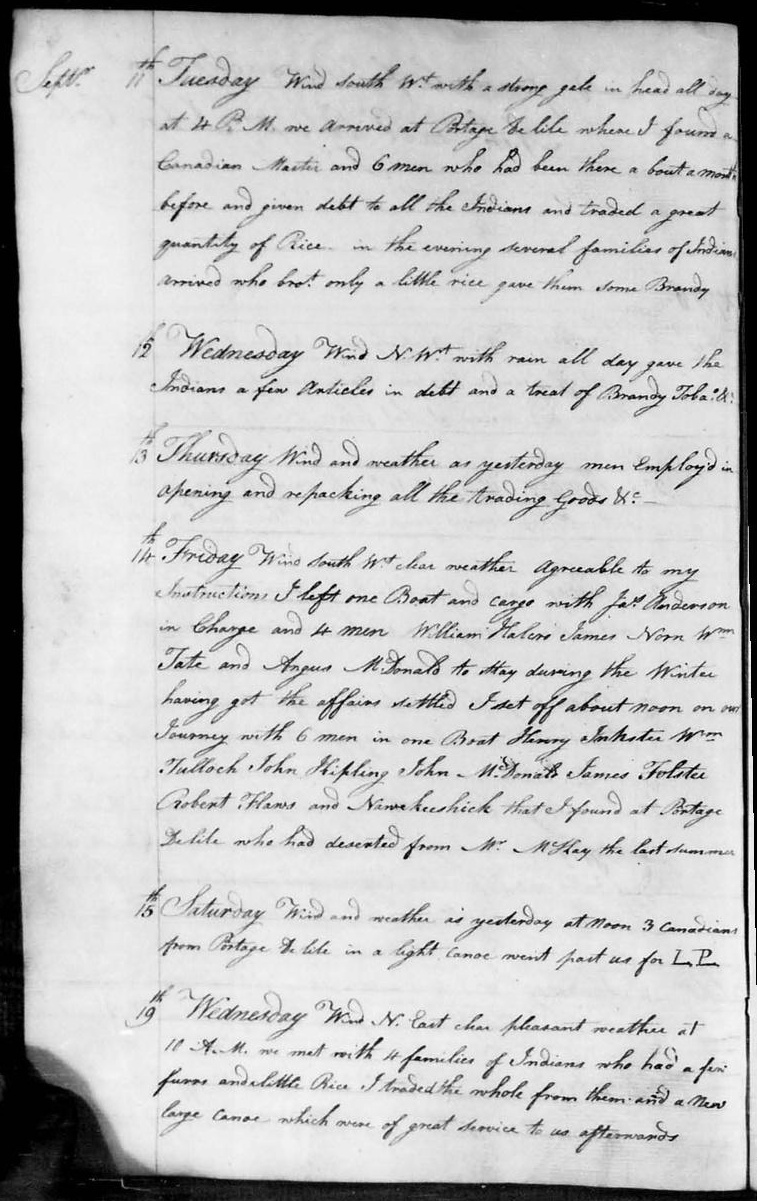 Septr. 11th Tuesday Wind South Wt with a strong gale in head all day
at 4 P.M. we arrived at Portage De lile where I found a
Canadian Master and 6 men who had been there a bout a month
before and given debt to all the Indians and traded a great
quantity of Rice. in the evening several families of Indians
arrived who brot. only a little rice gave them some Brandy
12th Wednesday Wind N. Wt with rain all day gave the
Indians a few Articles in debt and a treat of Brandy Toba.o &c
13th Thursday Wind and weather as yesterday men Employ'd in
opening and repacking all the trading Goods &c. —
14th Friday Wind South Wt clear weather Agreeable to my
Instructions I left one Boat and cargo with Jas. Anderson
in Charge and 4 men William James Norn Wm
Tate and Angus McDonald to stay during the Winter
having got the affairs settled I set off about noon on our
Journey with 6 men in one Boat Henry Inkster Wm
Tulloch John Kipling John McDonald James Folster
Robert Flaws and Nawekeeshick that I found at Portage
De lile who had deserted from Mr. McKay the last summer
15th Saturday Wind and weather as yesterday at noon 3 Canadians
from Portage De lile in a light Canoe went past us for L.P.
19th Wednesday Wind N. East clear pleasant weather at
10 A.M. we met with 4 families of Indians who had a few
furrs and a little Rice I traded the whole from them and a New
large Canoe which were of great service to us afterwards